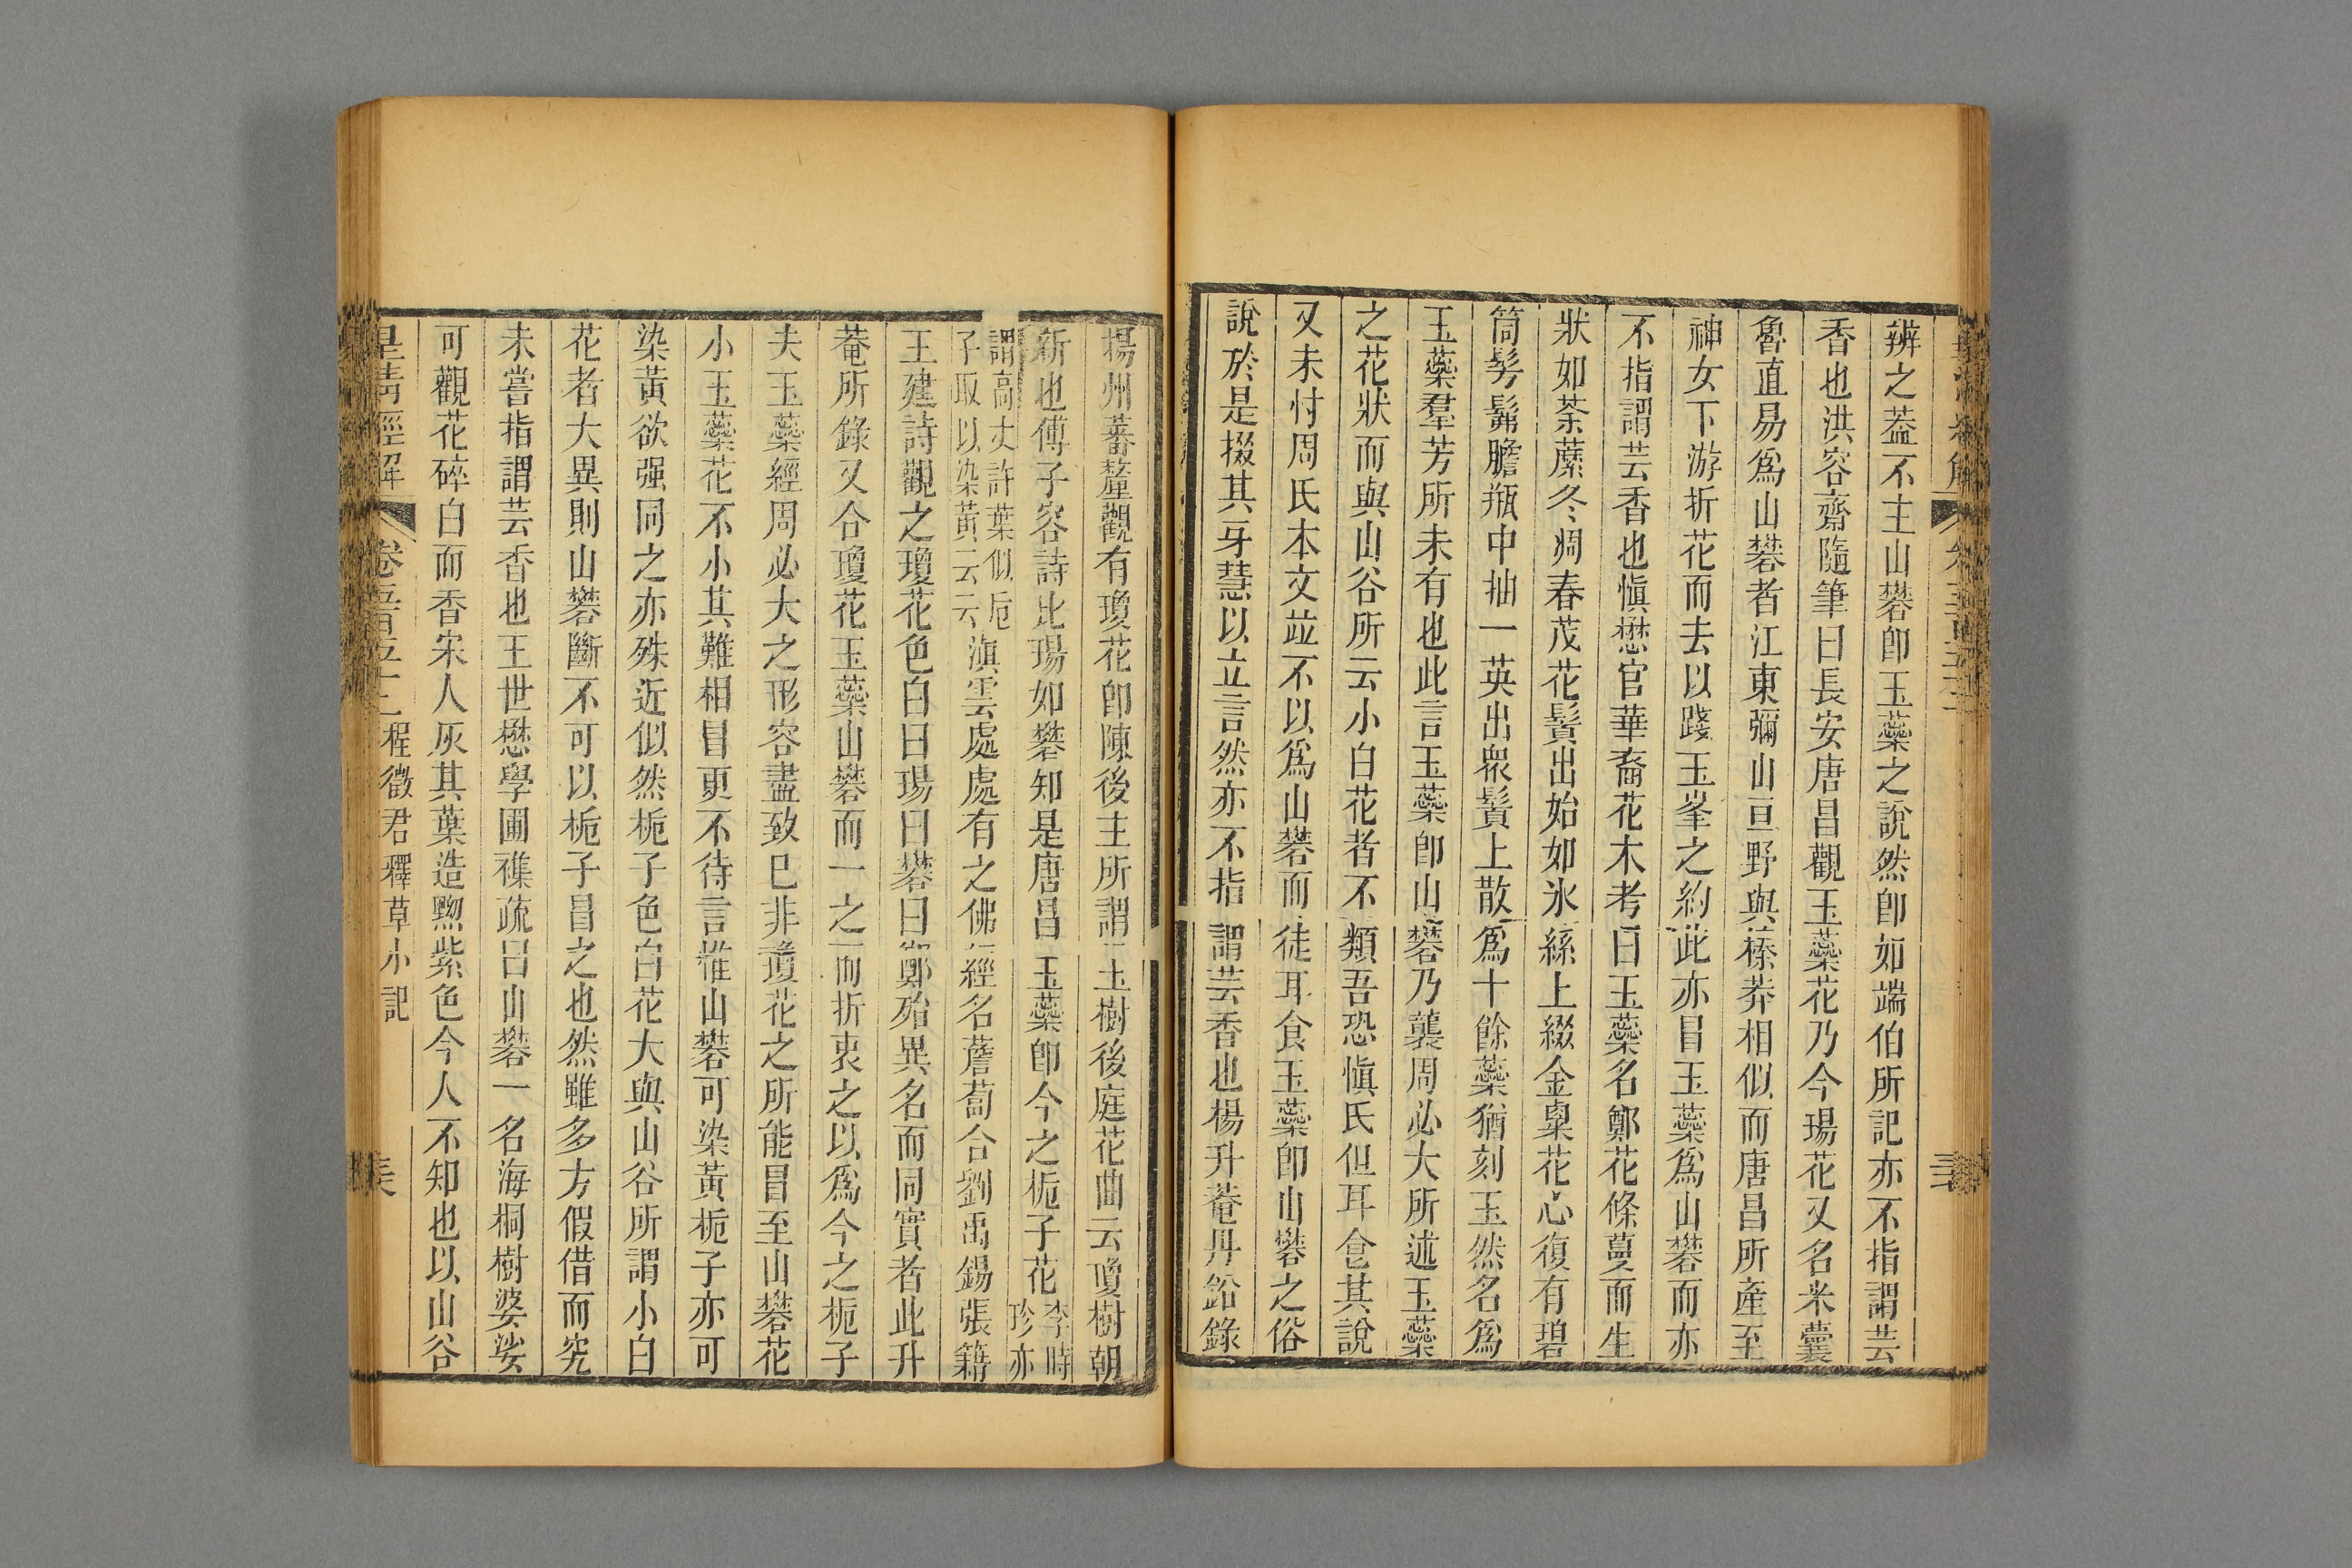 辨之葢不主山礬卽玉蘂之說然卽如端伯所記亦不指謂芸
香也洪容齋隨筆曰長安唐昌觀玉蘂花乃今瑒花又名米囊
魯直易爲山礬者江東彌山亘野與榛莽相似而唐昌所產至
神女下游折花而去以踐玉峯之約此亦冒玉蘂爲山礬而亦
不指謂芸香也愼懋官華裔花木考曰玉蘂名鄭花條蔓而生
狀如荼蘼冬凋春茂花鬚出始如氷絲上綴金粟花心復有碧
筒髣髴膽瓶中抽一英出衆鬚上散爲十餘蘂猶刻玉然名爲
玉蘂羣芳所未有也此言玉蘂卽山礬乃襲周必大所述玉蘂
之花狀而與山谷所云小白花者不類吾恐愼氏但耳食其說
又未忖周氏本文竝不以爲山礬而徒耳食玉蘂卽山礬之俗
說於是掇其牙慧以立言然亦不指謂芸香也楊升菴丹鉛錄
楊州蕃釐觀有瓊花卽陳後主所謂玉樹後庭花曲云瓊樹朝
新也傅子容詩比瑒如礬知是唐昌玉蘂卽今之梔子花李時珍亦
謂高丈許葉似卮子取以染黃云云滇雲處處有之佛經名薝蔔合劉禹錫張籍
王建詩觀之瓊花色白曰瑒曰礬曰鄭殆異名而同實者此升
菴所錄又合瓊花玉蘂山礬而一之而折衷之以爲今之梔子
夫玉蘂經周必大之形容盡致已非瓊花之所能冒至山礬花
小玉蘂花不小其難相冒更不待言惟山礬可染黃梔子亦可
染黃欲强同之亦殊近似然梔子色白花大與山谷所謂小白
花者大異則山礬斷不可以梔子冒之也然雖多方假借而究
未嘗指謂芸香也王世懋學圃襍疏曰山礬一名海桐樹婆娑
可觀花碎白而香宋人灰其葉造黝紫色今人不知也以山谷
皇淸經解 卷五百五十二 程徵君釋草小記